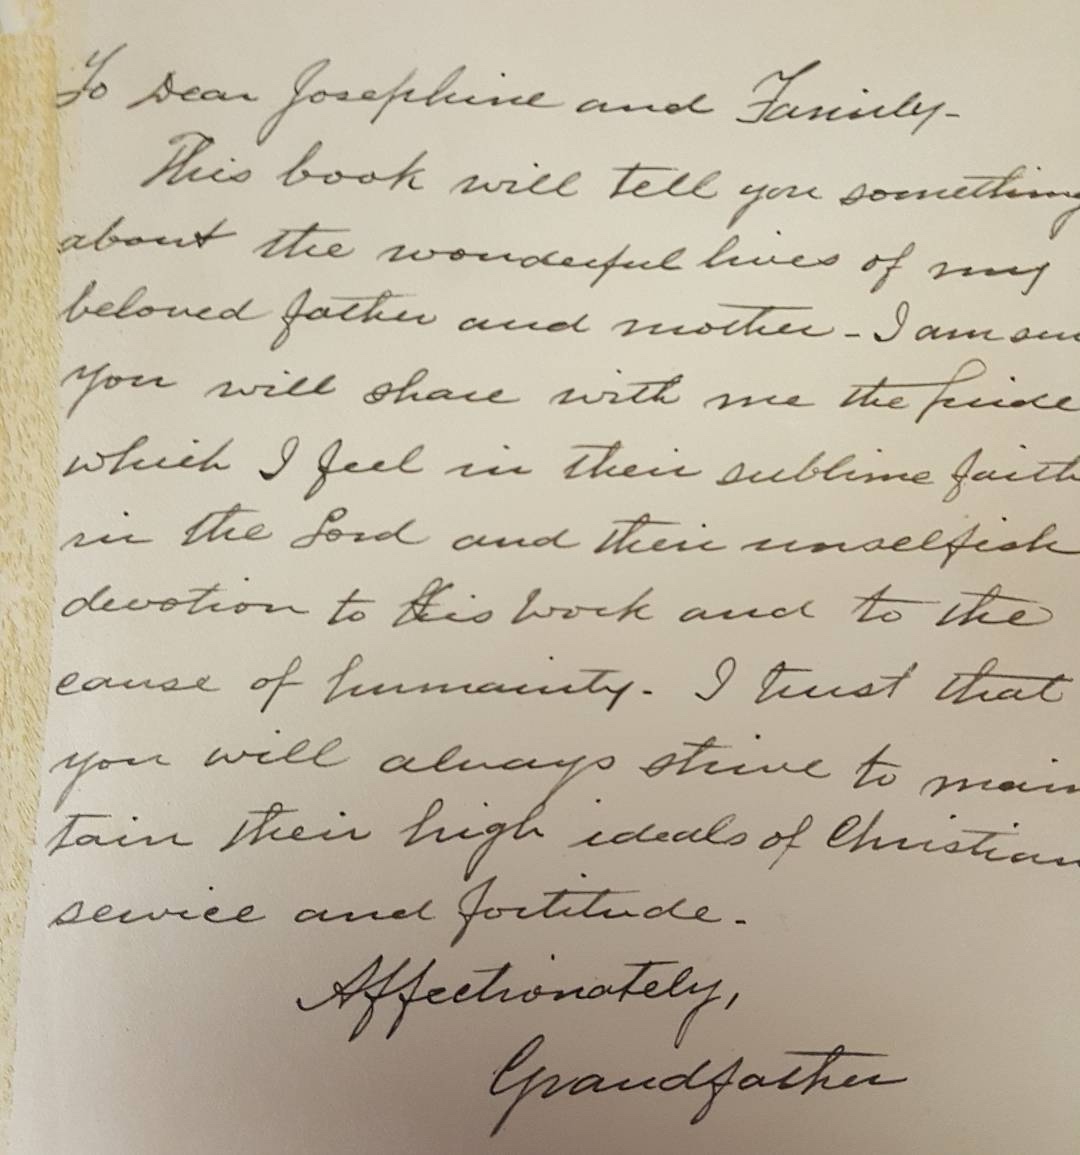 To Dear Josephine and Family-
This book will tell you something
about the wonderful lives of my
beloved father and mother - I am sure
you will share with me the pride
which I feel in their sublime faith
in the Lord and their unselfish
devotion to His Work and to the
cause of humanity. I trust that
you will always strive to main
tain their high ideals of Christian
service and fortitude.
Affectionately,
Grandfather